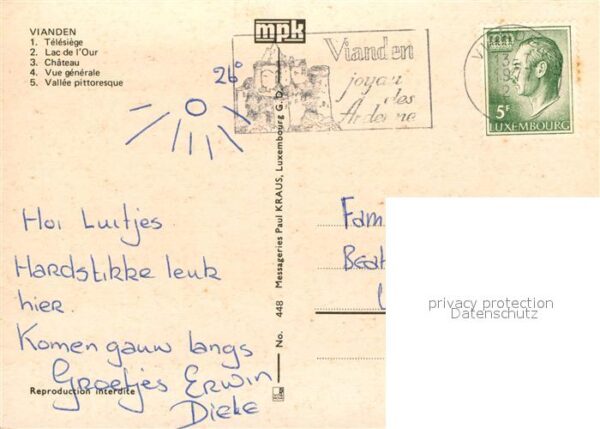 VIANDEN
1. Télésiège
2. Lac de l'Our
3. Château
4. Vue générale
5. Vallée pittoresque
mpk
Vianden
joyau
des
Ardenne
5F
LUXEMBOURG
26°
Hoi Luitjes
Hardstikke leuk
hier.
Komen gauw langs
Groetjes Erwin
Dieke
Reproduction interdite
No. 448 Messageries Paul KRAUS, Luxembourg G. D.
Fam
Beat
privacy protection
Datenschutz